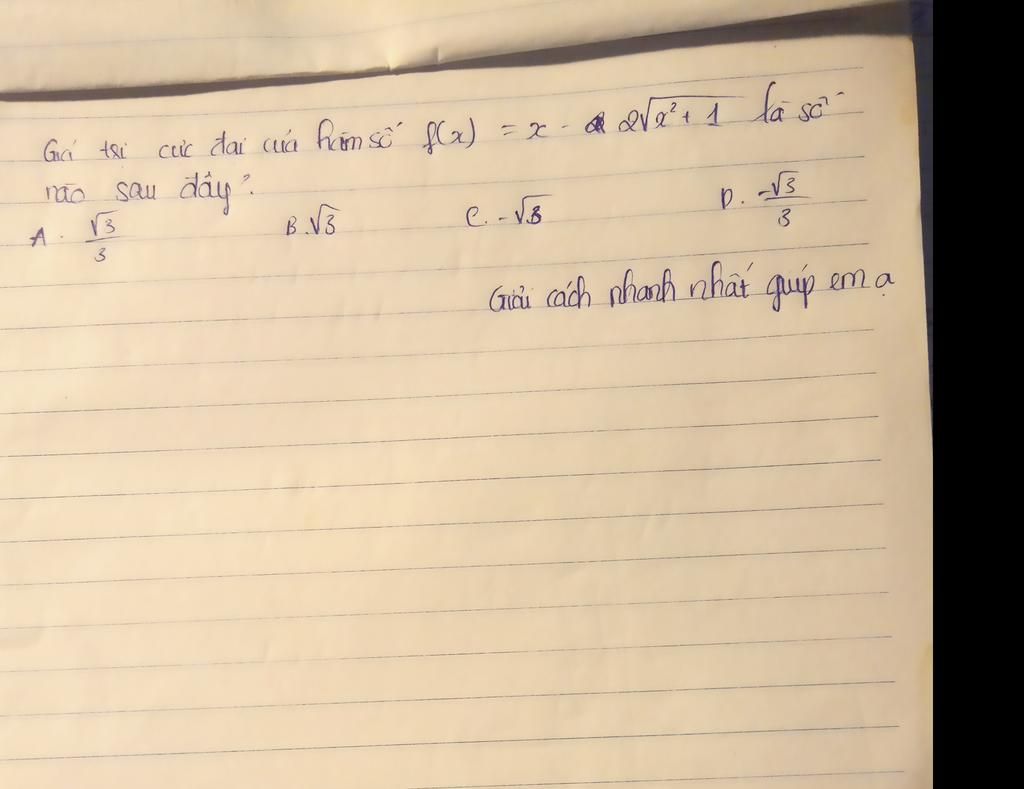 Giá trị cực đại của hàm số f(x) = x - 2√x²+1 là số
nào sau đây?
A. √3/3 B. √3 C. -√3 D. -√3/3
Giải cách nhanh nhất giúp em ạ